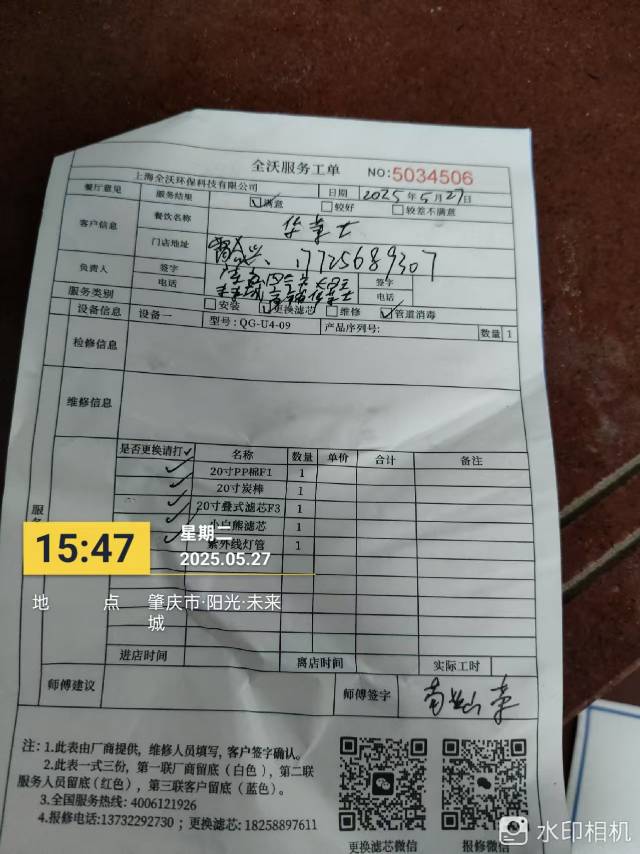 全沃服务工单 NO:5034506
上海全沃环保科技有限公司 日期 2025年5月27日
餐厅意见 服务结果 ☑满意 □较好 □较差不满意
客户信息 餐饮名称 华莱士
门店地址 17725689307
负责人 签字 签字
电话 电话
服务类别 □安装 ☑更换滤芯 □维修 ☑管道消毒
设备信息 设备一 型号:QG-U4-09 产品序列号: 数量 1
检修信息
维修信息
是否更换请打✓ 名称 数量 单价 合计 备注
✓ 20寸PP棉F1 1
✓ 20寸炭棒 1
✓ 20寸叠式滤芯F3 1
✓ 小白熊滤芯 1
✓ 紫外线灯管 1
服
15:47
星期二
2025.05.27
地 点 肇庆市·阳光·未来
城
进店时间 离店时间 实际工时
师傅建议 师傅签字
注:1.此表由厂商提供,维修人员填写,客户签字确认。
2.此表一式三份,第一联厂商留底(白色),第二联
服务人员留底(红色),第三联客户留底(蓝色)。
3.全国服务热线:4006121926
4.报修电话:13732292730;更换滤芯:18258897611
更换滤芯微信 报修微信
水印相机